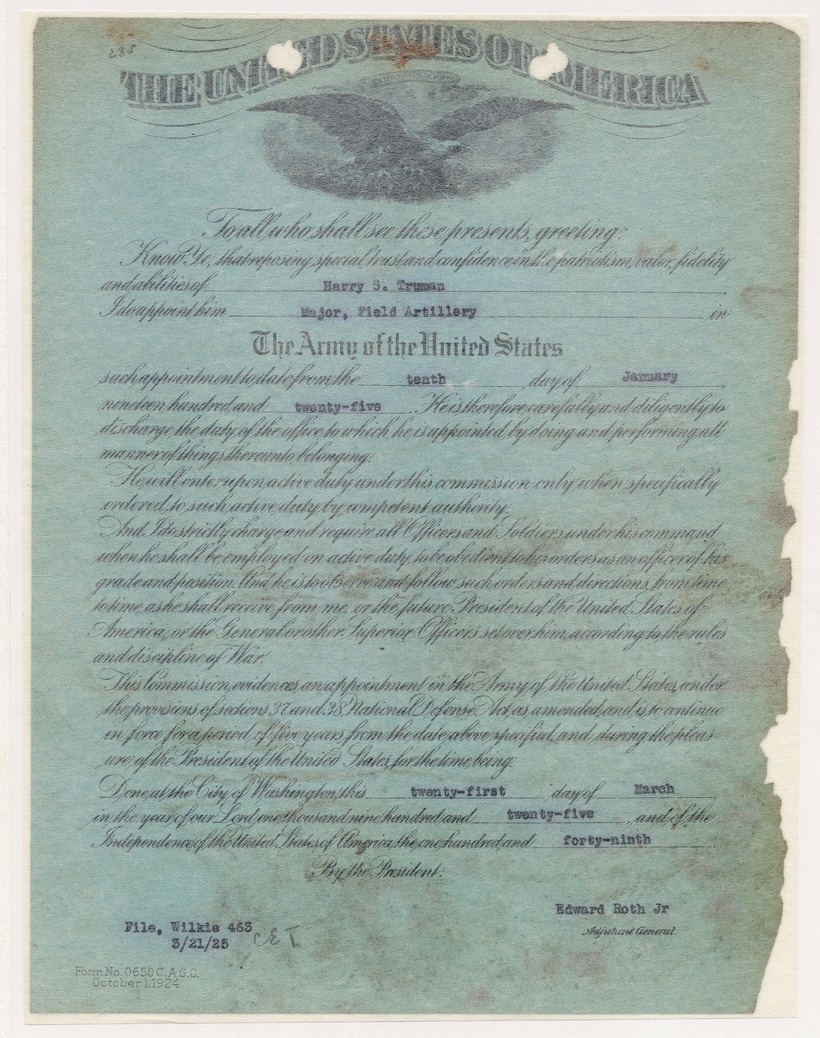 285
THE UNITED STATES OF AMERICA
To all who shall see these presents, greeting:
Know Ye, that reposing special trust and confidence in the patriotism, valor, fidelity
and abilities of Harry S. Truman
I do appoint him Major, Field Artillery in
The Army of the United States
such appointment to date from the tenth day of January
nineteen hundred and twenty-five. He is therefore carefully and diligently to
discharge the duty of the office to which he is appointed by doing and performing all
manner of things thereunto belonging.
He will enter upon active duty under this commission only when specifically
ordered to such active duty by competent authority.
And I do strictly charge and require all Officers and Soldiers under his command
when he shall be employed on active duty, to be obedient to his orders as an officer of his
grade and position. And he is to observe and follow such orders and directions, from time
to time, as he shall receive from me, or the future President of the United States of
America, or the General or other Superior Officers set over him, according to the rules
and discipline of War.
This Commission evidences an appointment in the Army of the United States, under
the provisions of sections 37 and 38 National Defense Act, as amended, and is to continue
in force for a period of five years from the date above specified, and during the pleas-
ure of the President of the United States, for the time being.
Done at the City of Washington, this twenty-first day of March
in the year of our Lord one thousand nine hundred and twenty-five, and of the
Independence of the United States of America the one hundred and forty-ninth
By the President:
Edward Roth Jr
Adjutant General.
File, Wilkie 463
3/21/25
Form No. 0650 C, A.G.O.
October 1, 1924